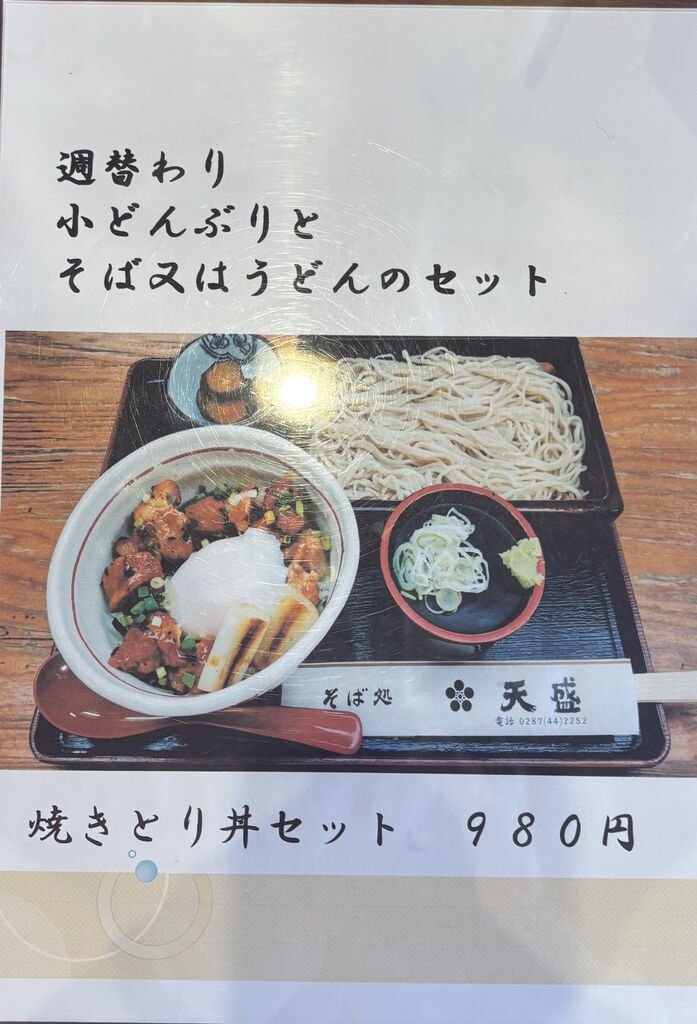 週替わり
小どんぶりと
そば又はうどんのセット
そば処 天盛
電話 0287(44)2252
焼きとり丼セット ９８０円